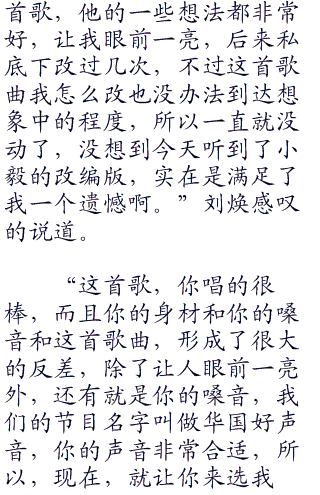 首歌，他的一些想法都非常
好，让我眼前一亮，后来私
底下改过几次，不过这首歌
曲我怎么改也没办法到达想
象中的程度，所以一直就没
动了，没想到今天听到了小
毅的改编版，实在是满足了
我一个遗憾啊。”刘焕感叹
的说道。
“这首歌，你唱的很
棒，而且你的身材和你的嗓
音和这首歌曲，形成了很大
的反差，除了让人眼前一亮
外，还有就是你的嗓音，我
们的节目名字叫做华国好声
音，你的声音非常合适，所
以，现在，就让你来选我